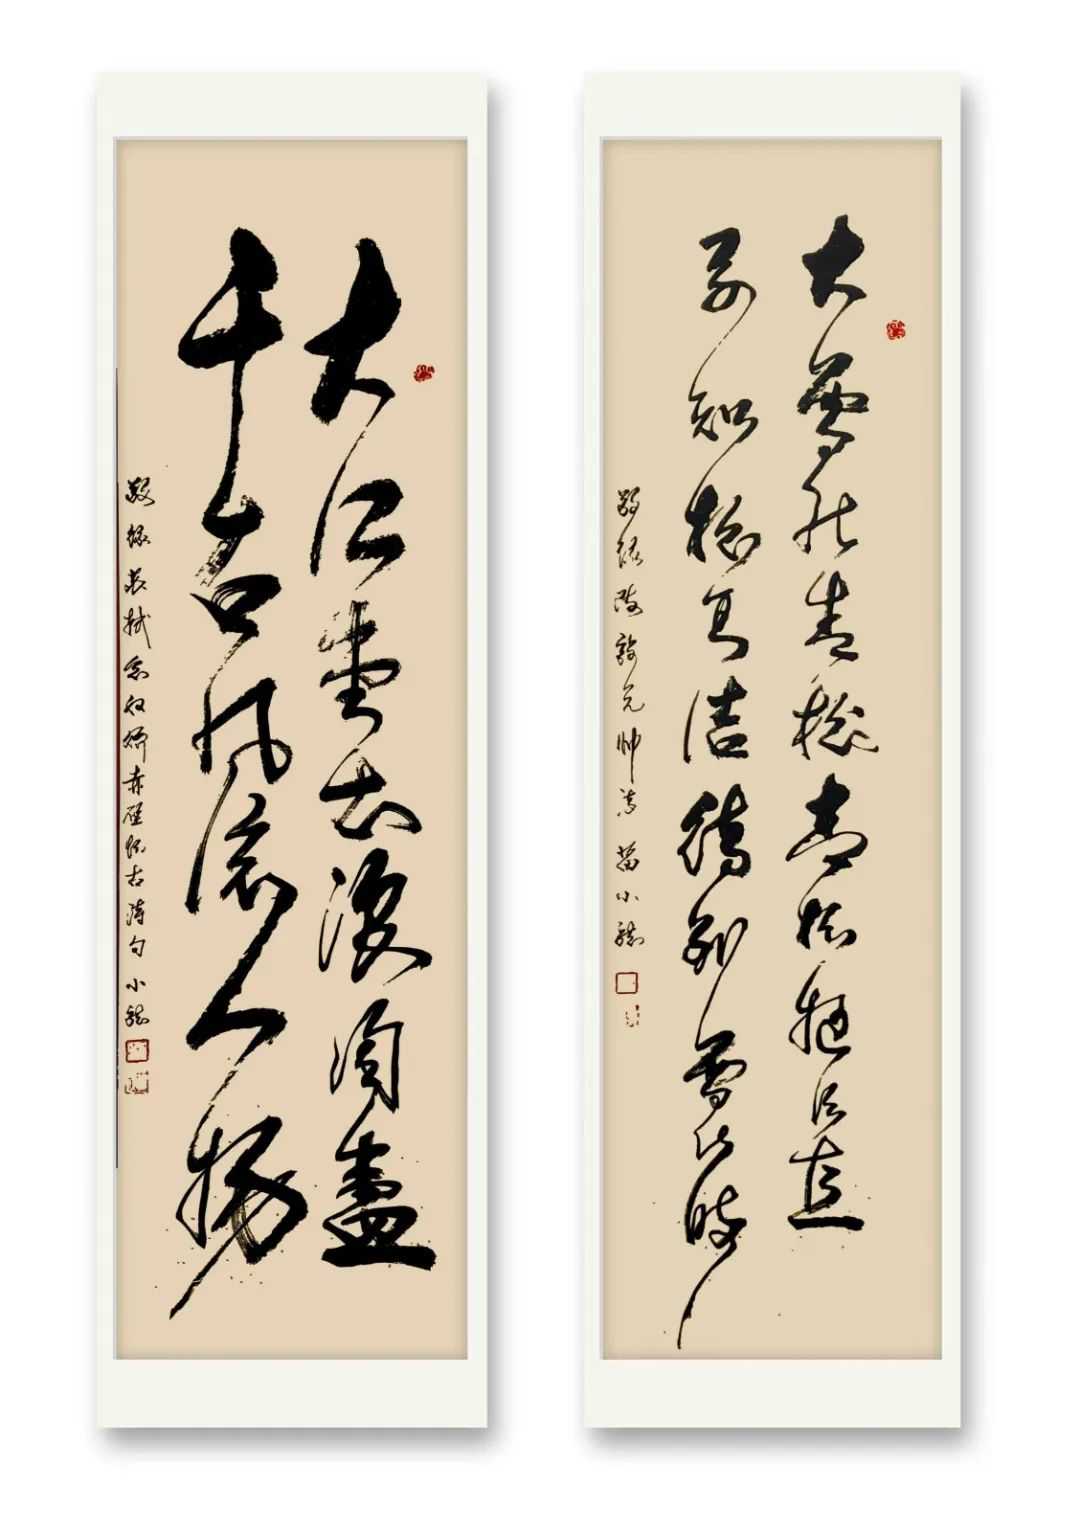 大江東去浪淘盡
千古風流人物
敬録蘇軾念奴嬌赤壁懷古詩句 小龍
大雪壓青松青松挺且直
要知松高潔待到雪化時
敬録陳毅元帥詩 苗小龍